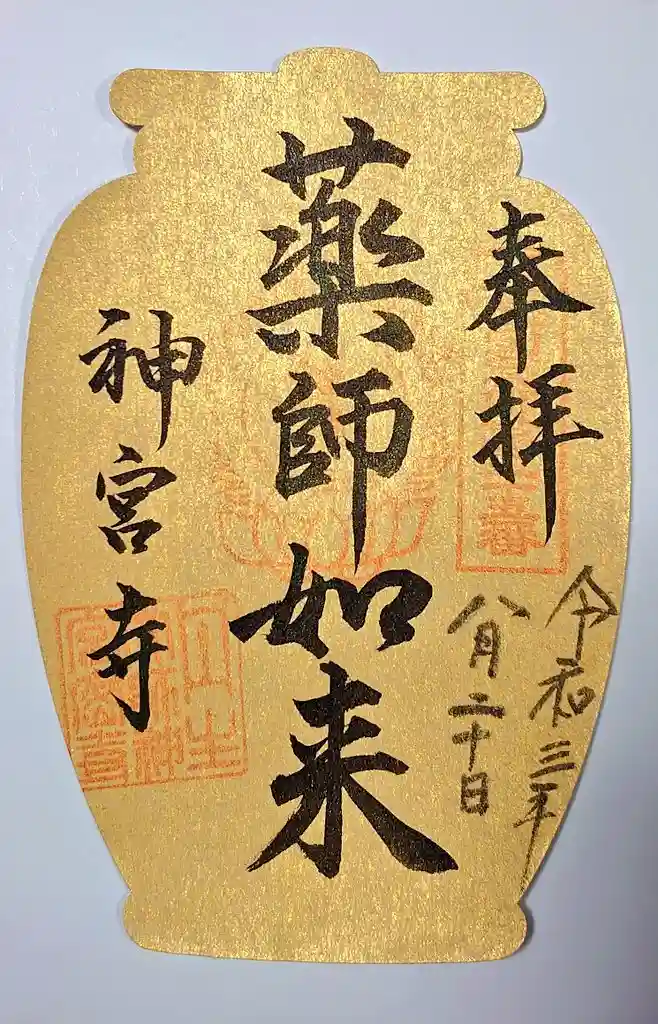 奉拝
令和三年
八月二十日
薬師如来
神宮寺